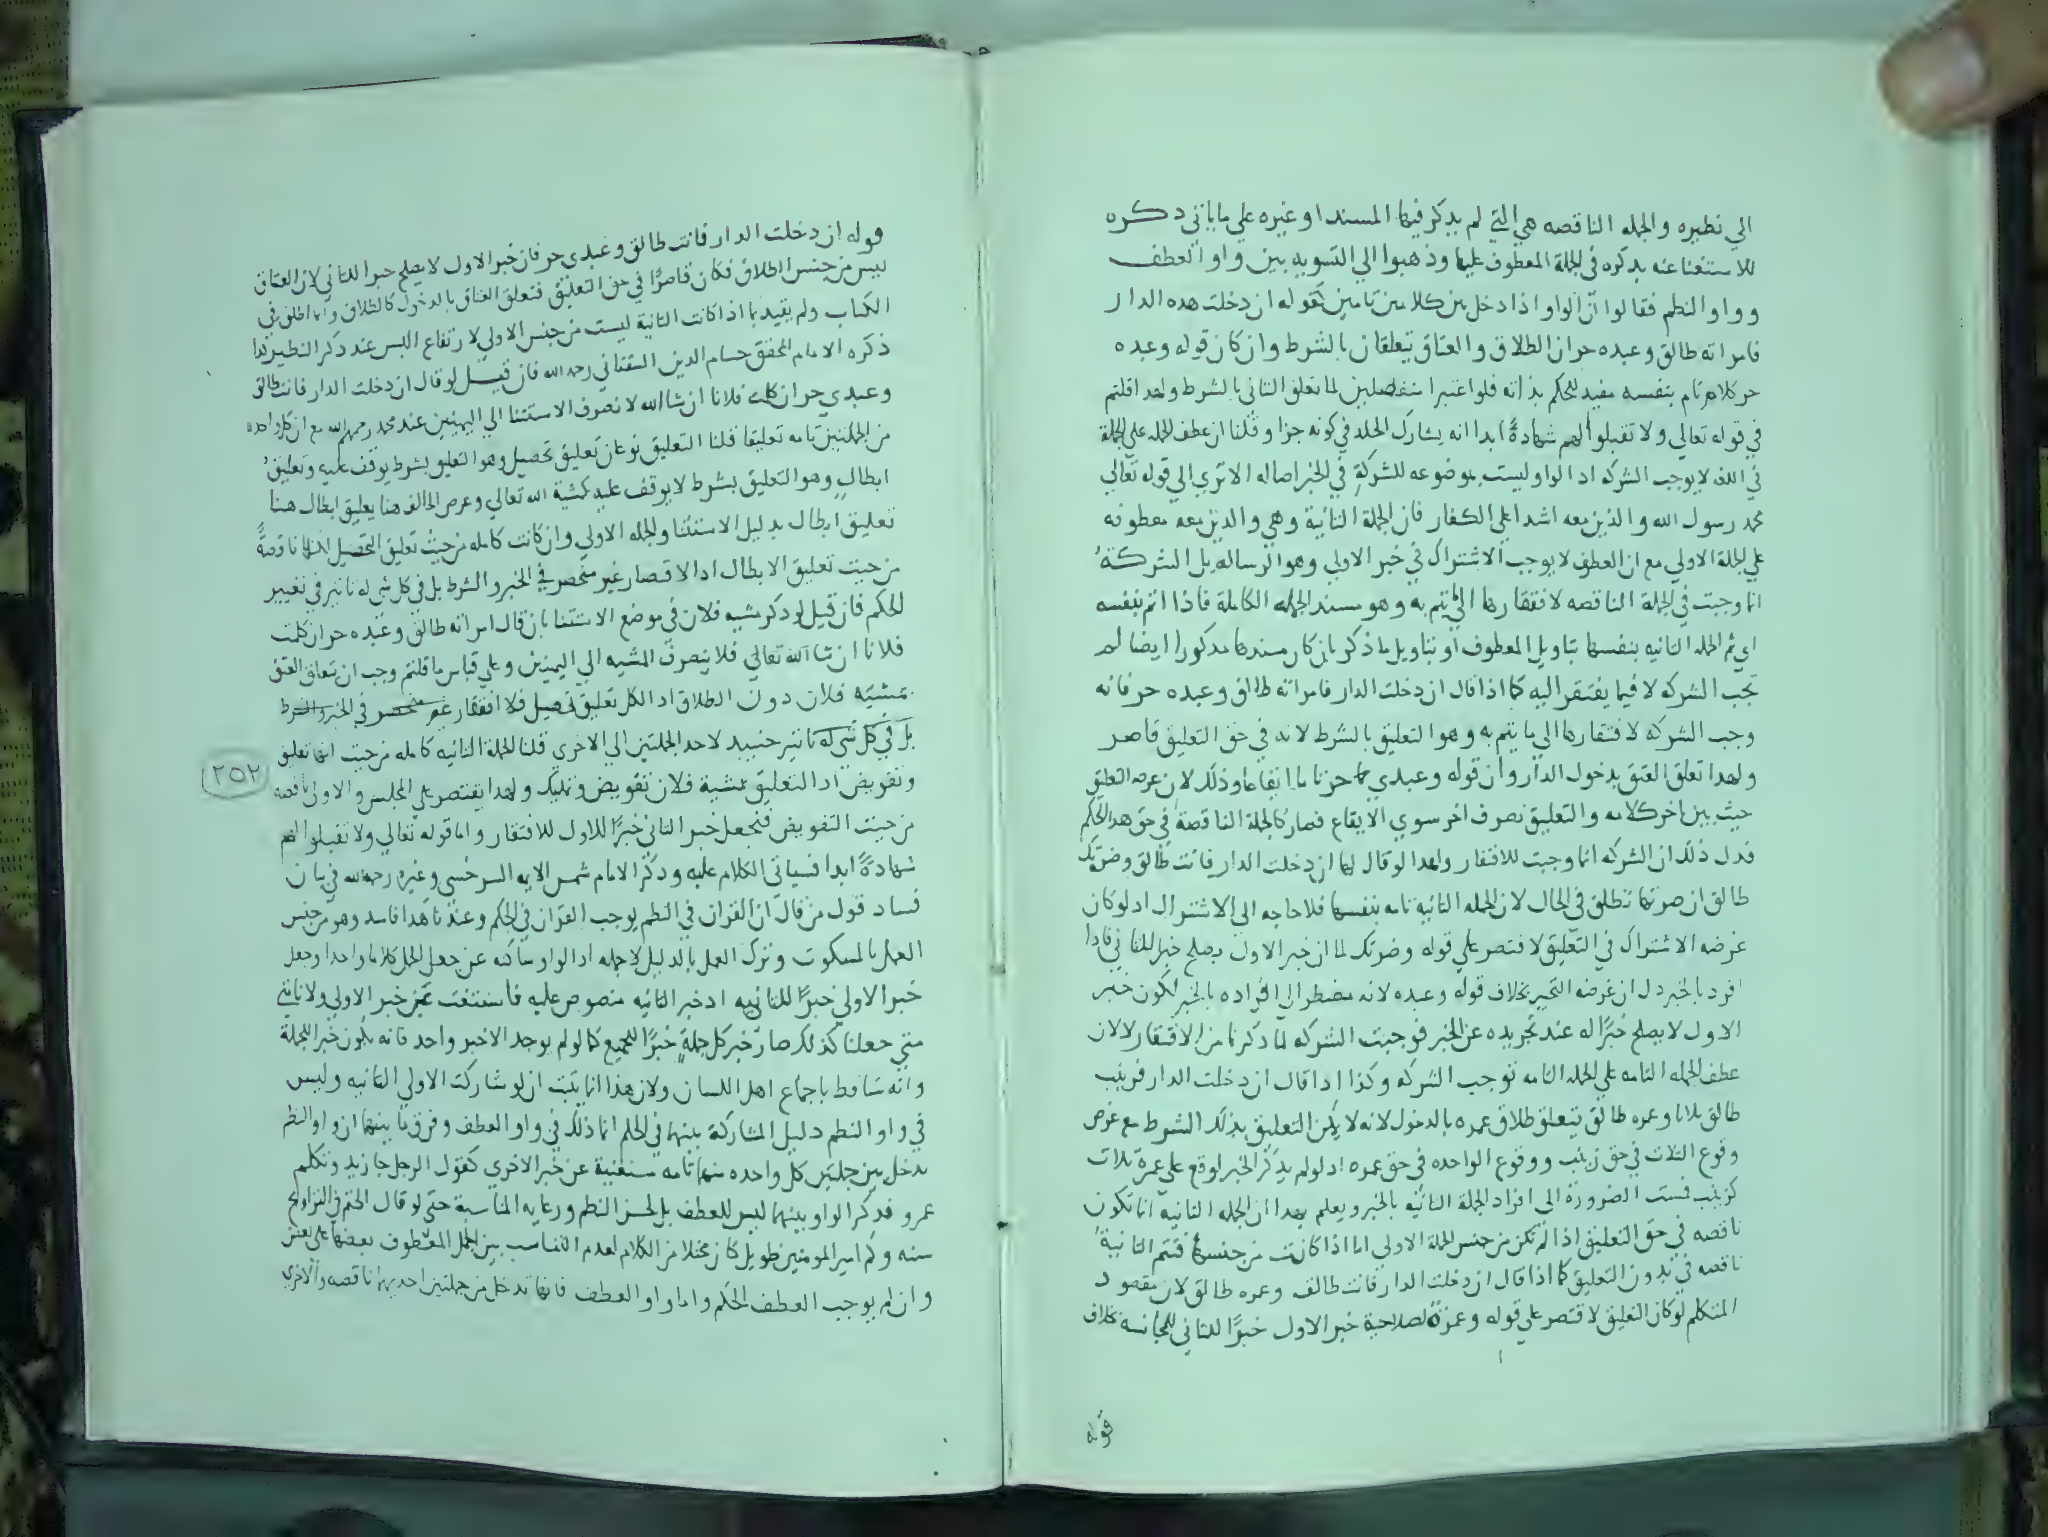 الي نطيره والجمله الناقصه هي التي لم يذكر فيها المسند او غيره علي ما ياتي ذكره
للاستغنا عنه بذكره في الجملة المعطوف عليها وذهبوا الي التسويه بين واو العطف
وواو النظم فقالوا ان الواو اذا دخل بين كلامين تامين كقوله ان دخلت هذه الدار
فامراته طالق وعبده حر ان الطلاق والعتاق يتعلقان بالشرط وان كان قوله وعبده
حر كلام تام بنفسه مفيد للحكم بذاته فلو اعتبرا منفصلين لما تعلق الثاني بالشرط ولهذا قلتم
في قوله تعالي ولا تقبلوا لهم شهادةً ابدا انه يشارك الجلد في كونه جزا وقلنا ان عطف الجمله علي الجملة
في اللغه لا يوجب الشركه اذ الواو ليست بموضوعه للشركةِ في الخبر اصاله الا تري الي قوله تعالي
محمد رسول الله والذين معه اشدا علي الكفار فان الجملة الثانية وهي والذين معه معطوفه
علي الجملة الاولي مع ان العطف لا يوجب الاشتراك في خبر الاولي وهو الرساله بل الشركةُ
انما وجبت في الجملة الناقصه لافتقارها الي ما يتم به وهو مسند الجملة الكاملة فاذا تم بنفسه
اي تم الجمله الثانيه بنفسها بتاويل المعطوف او بتاويل ما ذكر بان كان مسندها مذكورا ايضا لم
تجب الشركه الا فيما يفتقر اليه كما اذا قال ان دخلت الدار فامراته طالق وعبده حر فانه
وجب الشركه لافتقارها الي ما يتم به وهو التعليق بالشرط لانه في حق التعليق قاصر
ولهذا تعلق العتق بدخول الدار وان قوله وعبدي حر تاما ايقاعا وذلك لان عرضه التعليق
حيث بين اخر كلامه والتعليق تصرف اخر سوي الايقاع فصار كالجملة الناقصة في حق هذا الحكم
فدل ذلك ان الشركه انما وجبت للافتقار ولهذا لو قال لها ان دخلت الدار فانت طالق وضرتك
طالق ان ضرتها تطلق في الحال لان الجمله الثانيه تامه بنفسها فلا حاجه الى الاشتراك اذ لو كان
غرضه الاشتراك في التعليق لاقتصر علي قوله وضرتك لما ان خبر الاول يصلح خبرا للثاني فاذا
افرد بالخبر دل ان غرضه التنجيز بخلاف قوله وعبده لانه مضطر الي افراده بالخبر لكون خبر
الاول لا يصلح خبرًا له عند تجريده عن الخبر فوجبت الشركه لما ذكرنا من الافتقار لا لان
عطف الجمله التامه علي الجمله التامه توجب الشركه وكذا اذا قال ان دخلت الدار فزينب
طالق ثلاثا وعمره طالق يتعلق طلاق عمره بالدخول لانه لا يمكن التعليق بذلك الشرط مع غرض
وقوع الثلاث في حق زينب ووقوع الواحده في حق عمره اذ لو لم يذكر الخبر لوقع علي عمرة ثلاث
كزينب فمست الضرورة الى افراد الجملة الثانيه بالخبر ويعلم بهذا ان الجمله الثانيه انما تكون
ناقصه في حق التعليق اذا لم تكن من جنس الجملة الاولي اما اذا كانت من جنسها فتتم الثانيةُ
ناقصه في بدون التعليق كما اذا قال ان دخلت الدار فانت طالق وعمره طالق لان مقصود
المتكلم لو كان التعليق لاقتصر علي قوله وعمرة لصلاحية خبر الاول خبرًا للثاني للمجانسه بخلاف
قوله
قوله ان دخلت الدار فانت طالق وعبدي حر فان خبر الاول لا يصلح خبرا للثاني لان العتاق
ليس من جنس الطلاق فكان قاصرًا في حق التعليق فتعلق العتاق بالدخول كالطلاق وانما اطلق في
الكتاب ولم يقيد بما اذا كانت الثانية ليست من جنس الاولي لارتفاع اللبس عند ذكر النظير كذا
ذكره الامام المحقق حسام الدين السغناقي رحمه الله فان قيل لو قال ان دخلت الدار فانت طالق
وعبدي حر ان كلمت فلانا ان شا الله لا نصرف الاستثنا الي اليمينين عند محمد رحمهم الله مع ان كل واحده
من الجملتين تامه تعليقا قلنا التعليق نوعان تعليق تحصيل وهو التعليق بشرط يوقف عليه وتعليقُ
ابطالٍ وهو التعليق بشرط لا يوقف عليه كمشية الله تعالي وغرض الحالف هنا تعليق ابطال هنا
تعليق ابطال بدليل الاستثنا والجمله الاولي وان كانت كامله من حيث تعليق التحصيل لكنها ناقصةً
من حيث تعليق الابطال اذ الاقتصار غير منحصر في الخبر والشرط بل في كل شي له تاثير في تغيير
الحكم فان قيل لو ذكر مشيه فلان في موضع الاستثنا بان قال امراته طالق وعبده حر ان كلمت
فلانا ان شا الله تعالي فلا ينصرف المشيه الي اليمينين وعلي قياس ما قلتم وجب ان يتعلق العتق
بمشيّه فلان دون الطلاق اذ الكل تعليق تحصيل فلا افتقار غير منحصر في الخبر والشرط
بل في كل شي له تاثير حينيد لاحد الجملتين الي الاخري قلنا الجملة الثانيه كامله من حيث انها تعليق
وتفويض اذ التعليق بمشية فلان تفويض وتمليك ولهذا يقتصر علي المجلس والاولى ناقصه
من حيث التفويض فنجعل خبر الثاني خبرًا للاول للافتقار واما قوله تعالي ولا تقبلوا لهم
شهادةً ابدا فسياتي الكلام عليه وذكر الامام شمس الايمه السرخسي وغيره رحمه الله في بيان
فساد قول من قال ان القران في النظم يوجب القران في الحكم وعندنا هذا فاسد وهو من جنس
العمل بالمسكوت وترك العمل بالدليل لاجله اذ الواو ساكته عن جعل الجمل كلاما واحدا وجعل
خبر الاولي خبرًا للثانيه اذ خبر الثانيه منصوص عليه فاستغنت عن خبر الاولي ولانا متي
متي جعلنا كذلك صار خبر كل جملةٍ خبرًا للجميع كما لو لم يوجد الا خبر واحد فانه يكون خبرا للجملة
وانه ساقط باجماع اهل اللسان ولان هذا انما يثبت ان لو شاركت الاولي الثانيه وليس
في واو النظم دليل المشاركة بينهما في الحكم انما ذلك في واو العطف وفرق ما بينهما ان واو النظم
تدخل بين جملتين كل واحده منهما تامه مستغنية عن خبر الاخري كقول الرجل جا زيد وتكلم
عمرو فذكر الواو بينهما ليس للعطف بل لحسن النظم ورعايه المناسبة حتي لو قال الختم في التراويح
سنه وكم امير المومنين طويل كان مختلا من الكلام لعدم التناسب بين الجمل المعطوف بعضها علي بعض
وان لم يوجب العطف الحكم واما واو العطف فانها تدخل من جملتين احديهما ناقصه والاخري
٢٥٢